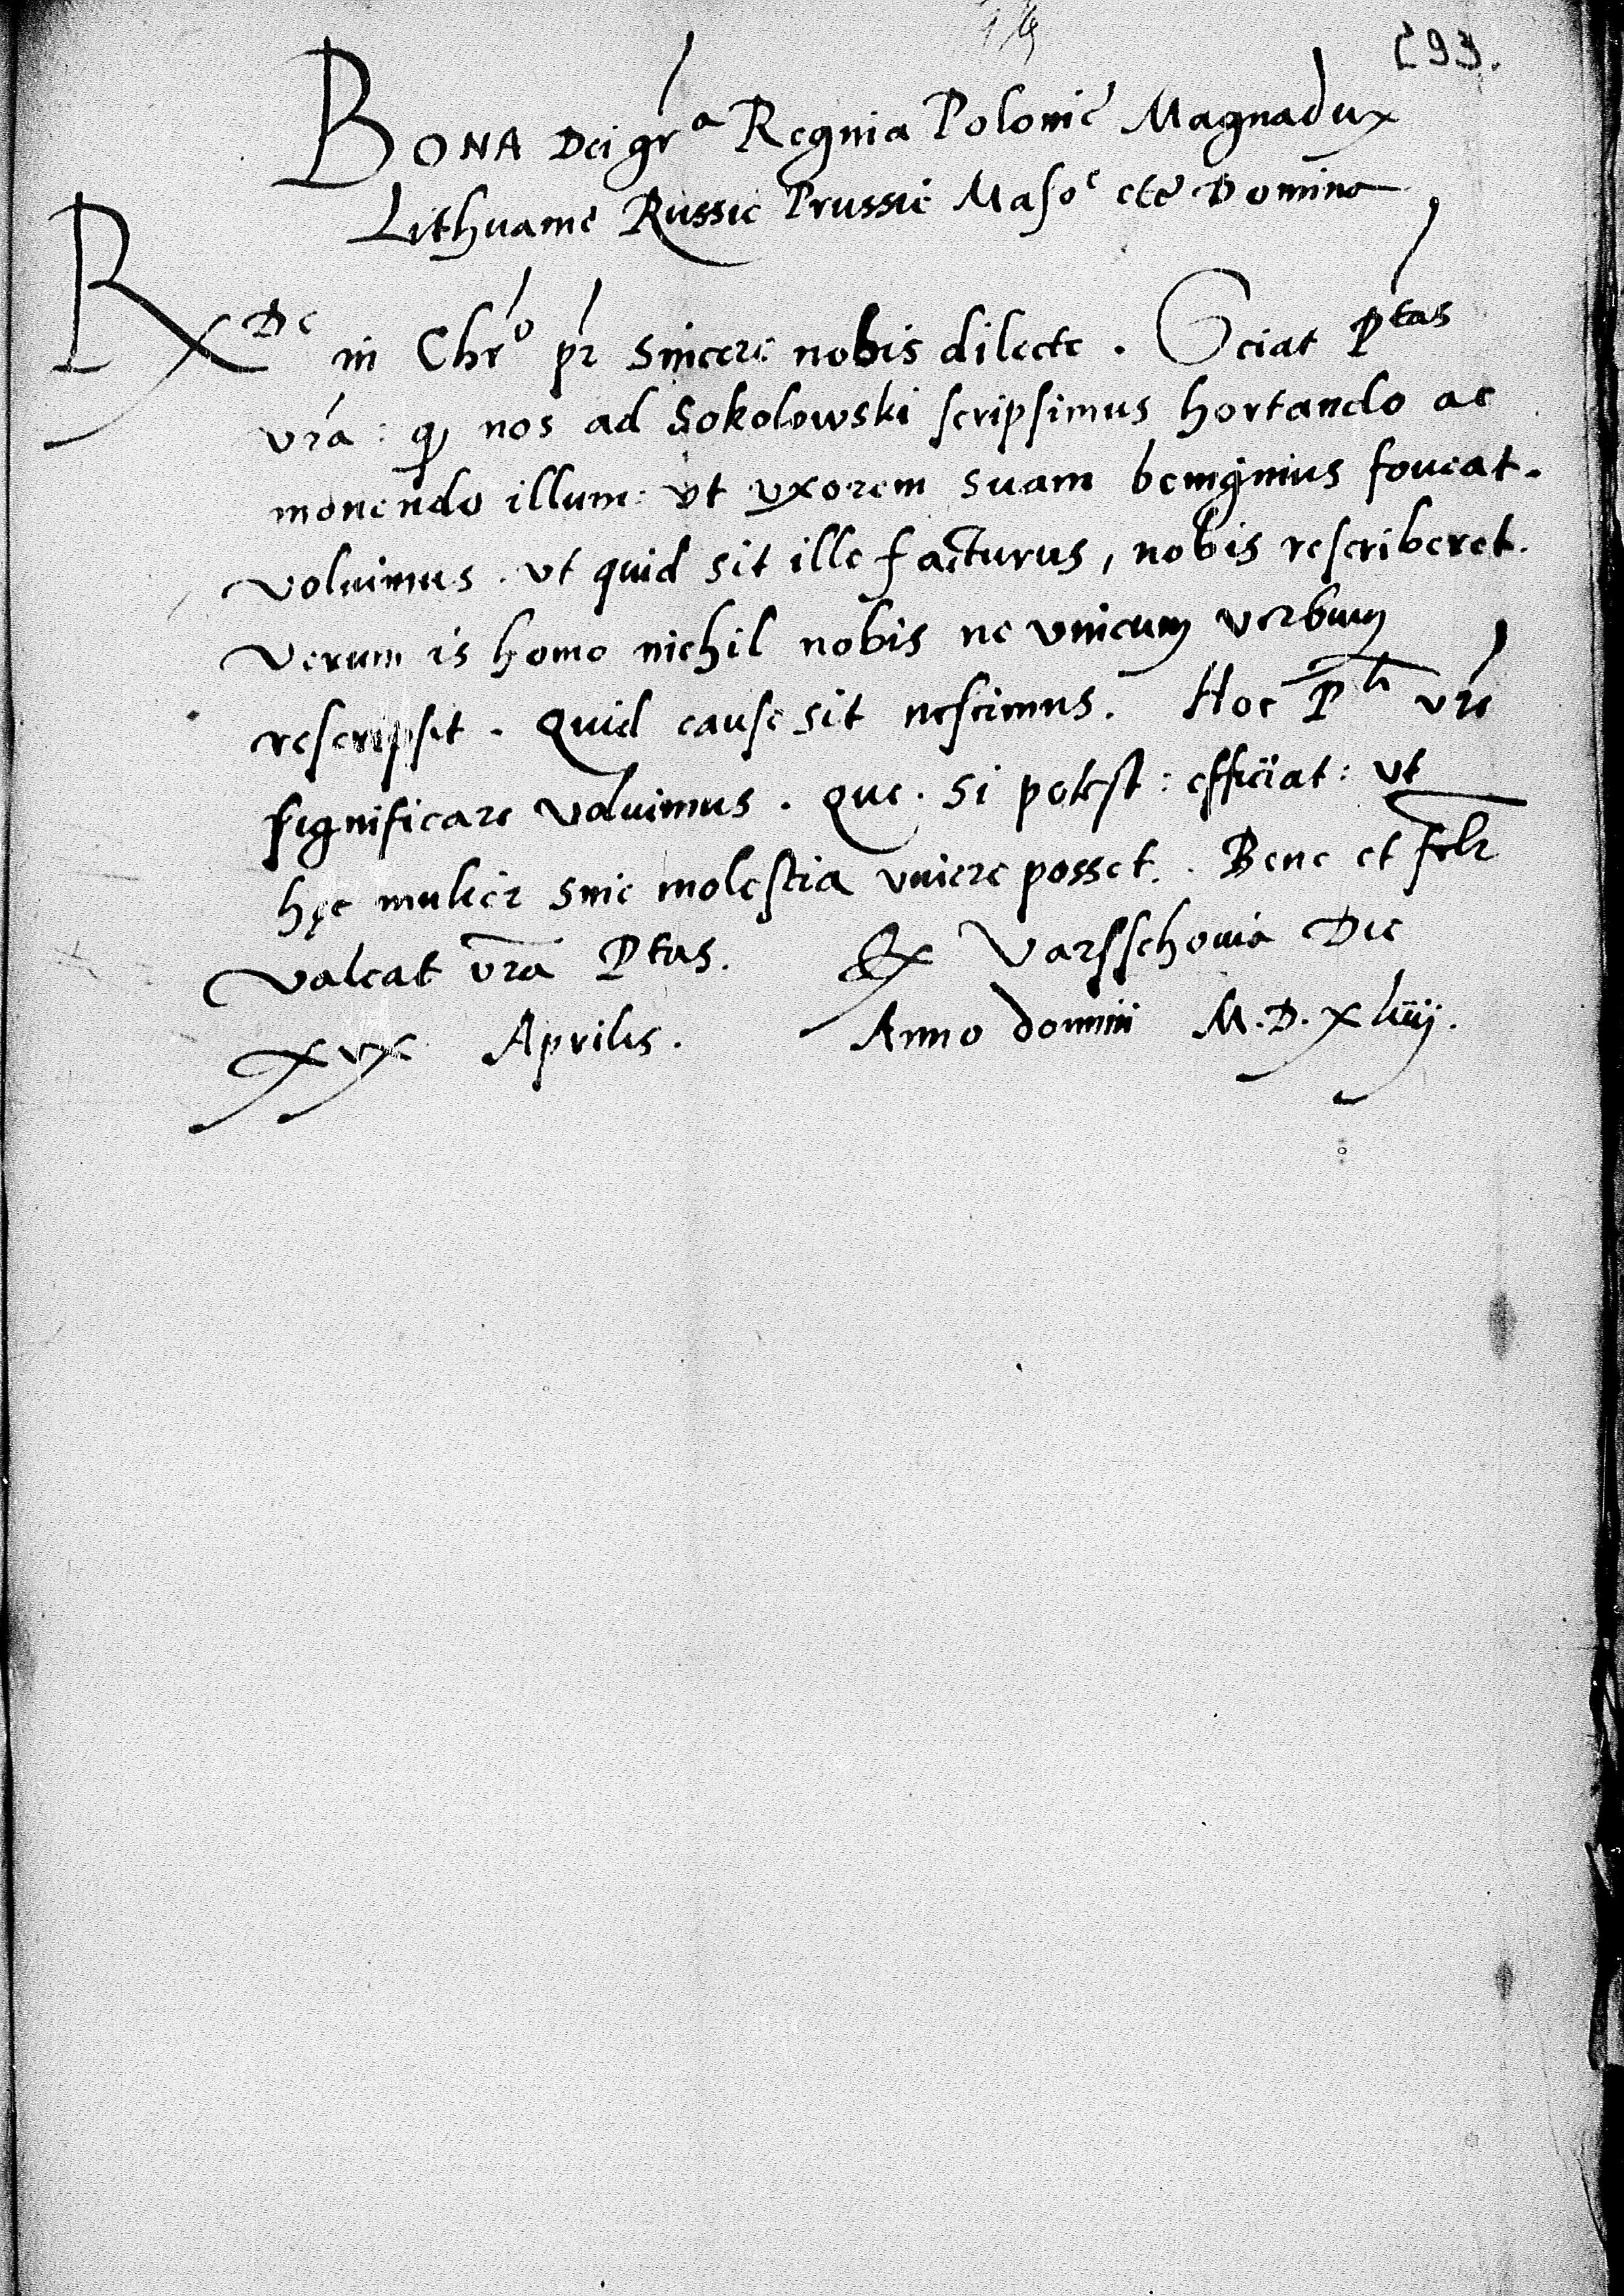 293.
BONA Dei gr̃a Regina Polonie Magnadux
Lithuanie Russie Prussie Maso^e etc̃ Domina
Rx^De in Chr̃o pr̃ sincere nobis dilecte . Sciat Ptas
vr̃a : q nos ad Sokolowski scripsimus hortando ac
monendo illum : vt vxorem suam benignius foueat .
voluimus . vt quid sit ille facturus , nobis rescriberet .
verum is homo nichil nobis ne vnicum verbum
rescripsit . Quid cause sit nescimus . Hoc P^ti vr̃e
significare voluimus . Que . si potest : efficiat : vt
hęc mulier sine molestia viuere posset . Bene et felr̃
valeat vr̃a Ptas . Ex Varsschouia Die
xvx Aprilis . Anno domini M.D.xliiij .